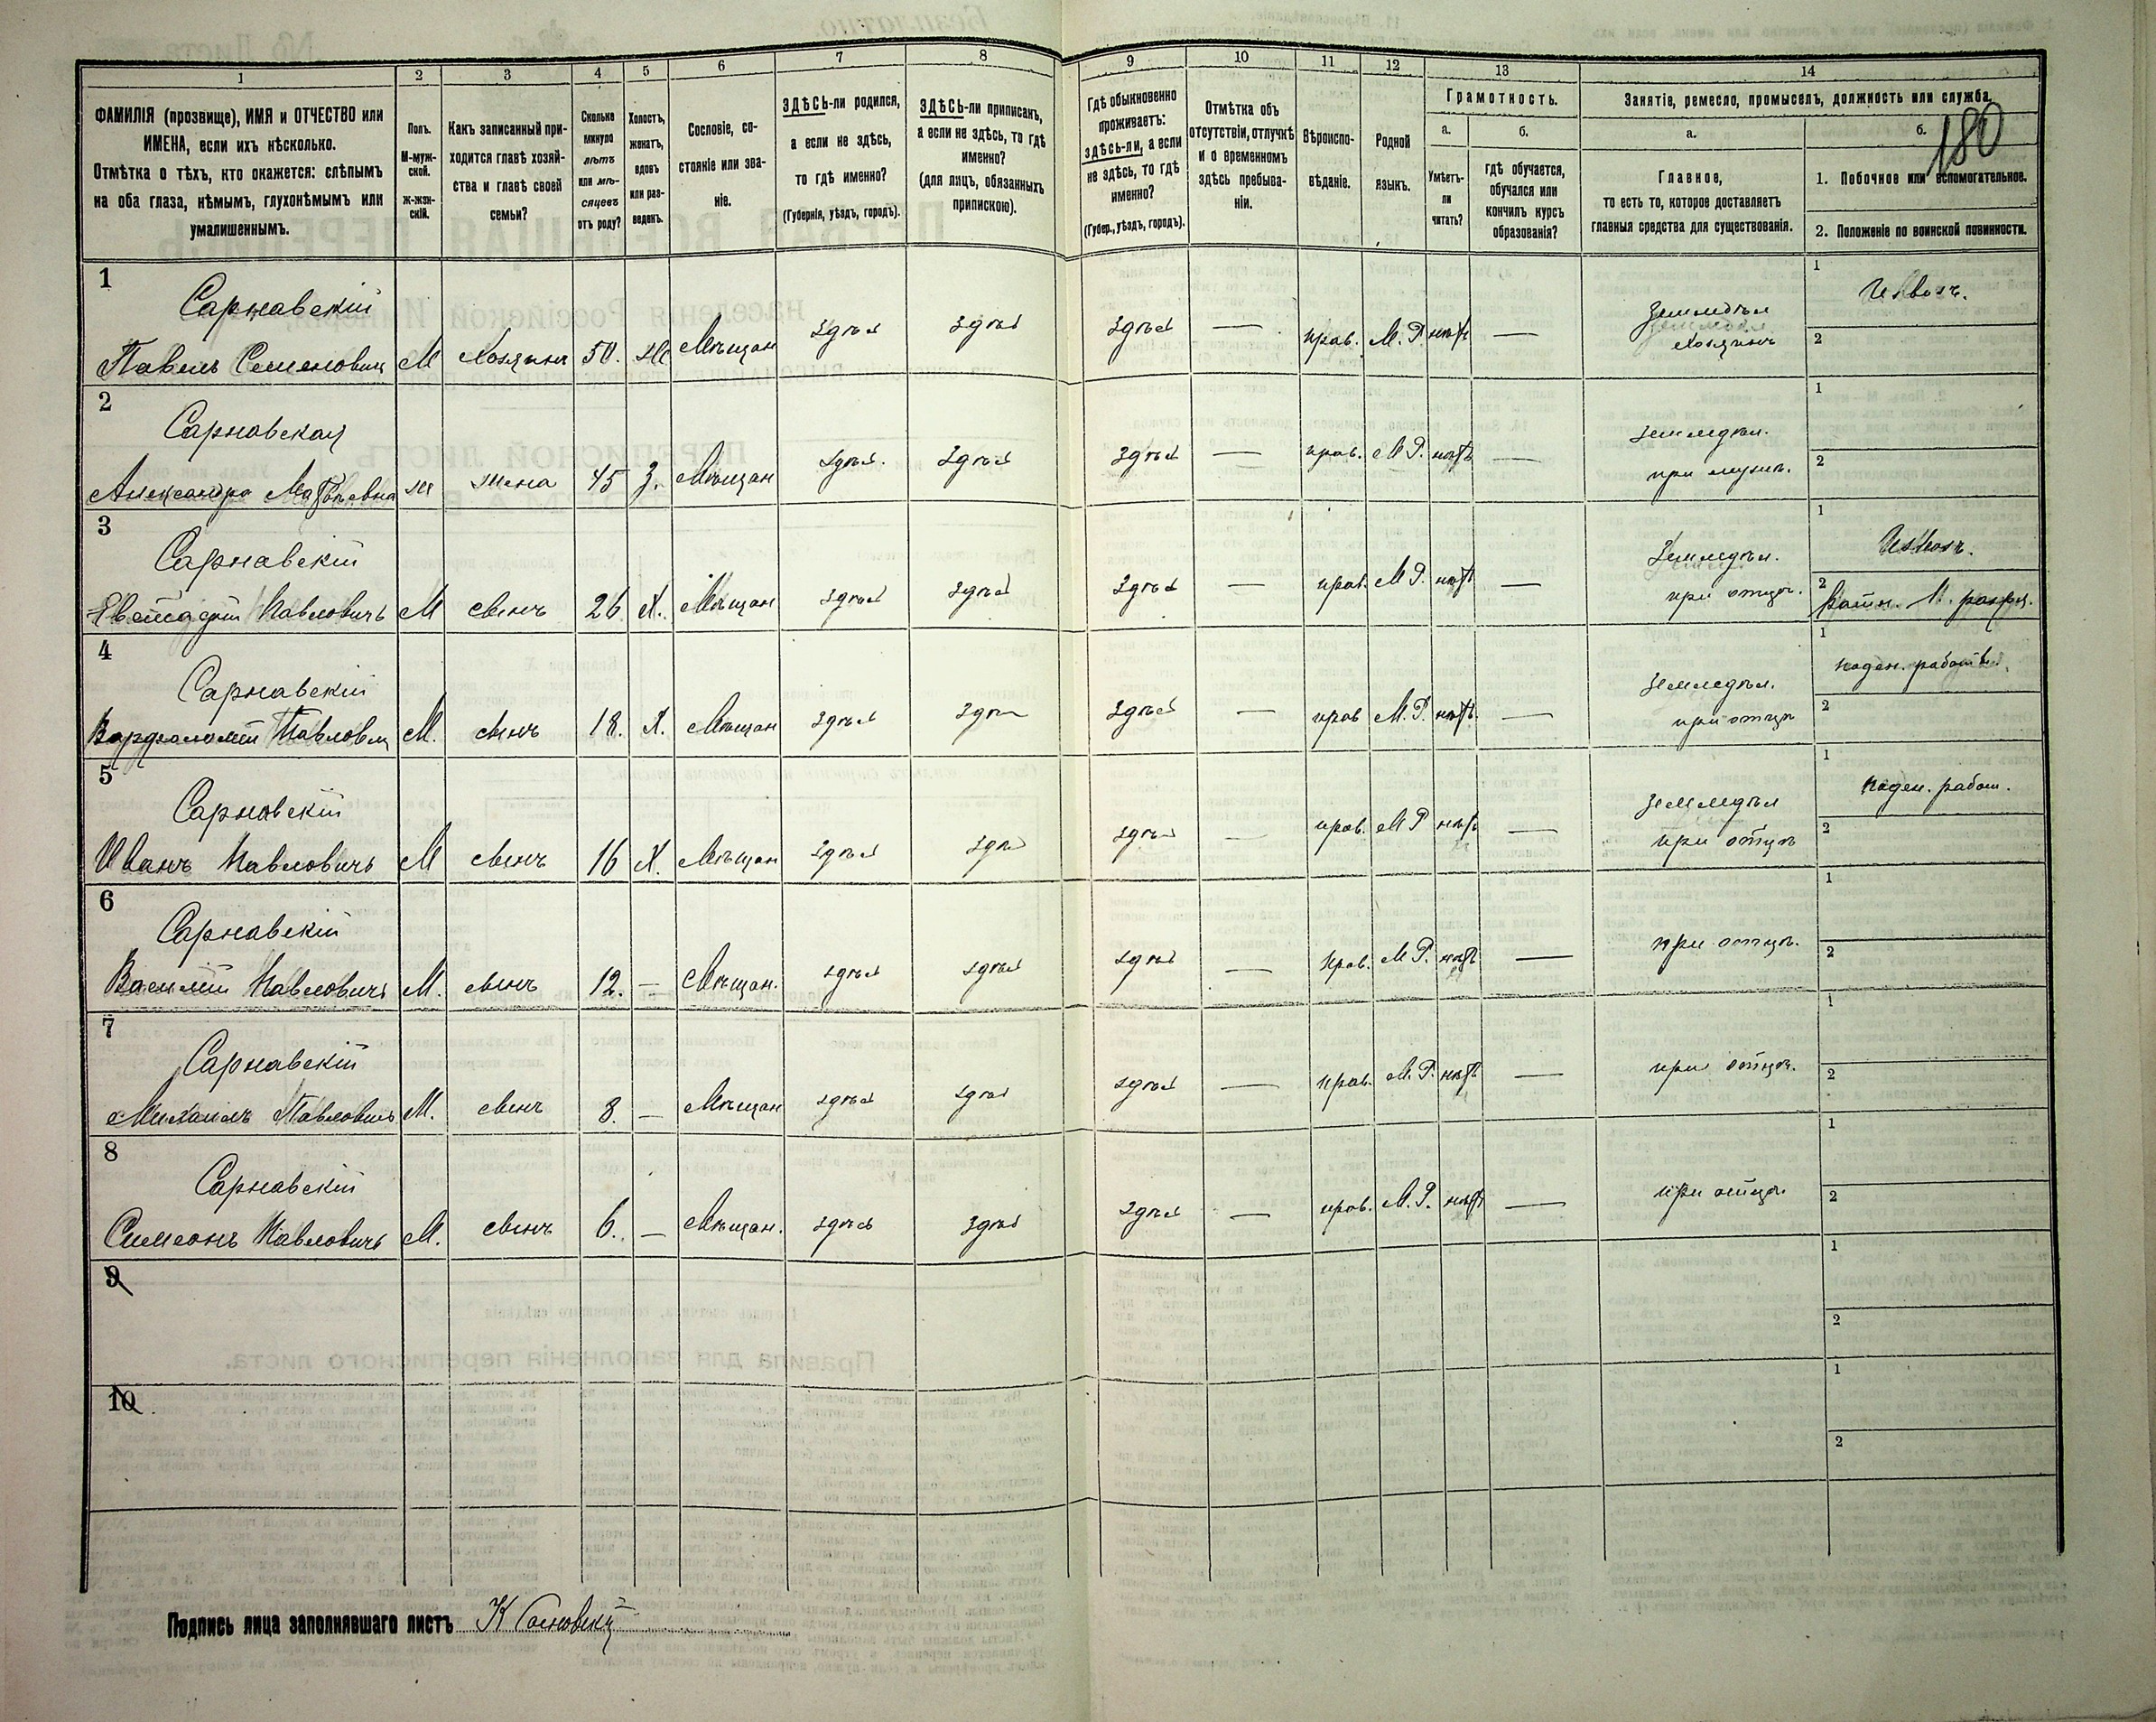 180
1 2 3 4 5 6 7 8 9 10 11 12 13 14
ФАМИЛІЯ (прозвище), ИМЯ и ОТЧЕСТВО или
ИМЕНА, если ихъ нѣсколько.
Отмѣтка о тѣхъ, кто окажется: слѣпымъ
на оба глаза, нѣмымъ, глухонѣмымъ или
умалишеннымъ.
Полъ.
М-муж-
ской.
Ж-жен-
скій.
Какъ записанный при-
ходится главѣ хозяй-
ства и главѣ своей
семьи?
Сколько
минуло
лѣтъ
или мѣ-
сяцевъ
отъ роду?
Холостъ,
женатъ,
вдовъ
или раз-
веденъ.
Сословіе, со-
стояніе или зва-
ніе.
ЗДѢСЬ-ли родился,
а если не здѣсь,
то гдѣ именно?
(Губернія, уѣздъ, городъ).
ЗДѢСЬ-ли приписанъ,
а если не здѣсь, то гдѣ
именно?
(для лицъ, обязанныхъ
припискою).
Гдѣ обыкновенно
проживаетъ:
здѣсь-ли, а если
не здѣсь, то гдѣ
именно?
(Губер., уѣздъ, городъ).
Отмѣтка объ
отсутствіи, отлучкѣ
и о временномъ
здѣсь пребыва-
ніи.
Вѣроиспо-
вѣданіе.
Родной
языкъ.
Грамотность.
а.
Умѣетъ-
ли
читать?
б.
гдѣ обучается,
обучался или
кончилъ курсъ
образованія?
Занятіе, ремесло, промыселъ, должность или служба.
а.
Главное,
то есть то, которое доставляетъ
главныя средства для существованія.
б.
1. Побочное или вспомогательное.
2. Положеніе по воинской повинности.
1 Сарнавскій
Павелъ Семеновичъ М Хозяинъ 50. Ж Мѣщан здѣсь здѣсь здѣсь — прав. М. Р. нѣтъ —
Земледѣл
хозяинъ
1 Извозъ.
2
2 Сарнавская
Александра Матвѣевна Ж жена 45 З. Мѣщан здѣсь. здѣсь здѣсь — прав. М Р. нѣтъ —
земледѣл.
при мужѣ.
1
2
3 Сарнавскій
Павловичъ М сынъ 26 Х. Мѣщан здѣсь здѣсь здѣсь — прав. М Р. нѣтъ —
Земледѣл.
при отцѣ.
1 Извозъ.
2 Ратн. 1. разряд.
4 Сарнавскій
Варфоломѣй Павлович М. сынъ 18. Х. Мѣщан здѣсь здѣсь здѣсь — прав М. Р. нѣтъ. —
Земледѣл.
при отцѣ
1 поден. работн.
2
5 Сарнавскій
Иванъ Павловичъ М сынъ 16 Х. Мѣщан здѣсь здѣсь здѣсь — прав. М Р нѣтъ —
Земледѣл
при отцѣ
1 поден. работ.
2
6 Сарнавскій
Василій Павловичъ М. сынъ 12. — Мѣщан. здѣсь здѣсь здѣсь — прав. М Р. нѣтъ —
при отцѣ.
1
2
7 Сарнавскій
Михаилъ Павловичъ М. сынъ 8. — Мѣщан здѣсь здѣсь здѣсь — прав. М. Р. нѣтъ —
при отцѣ.
1
2
8 Сарнавскій
Симеонъ Павловичъ М. сынъ 6. — Мѣщан. здѣсь здѣсь здѣсь — прав. М. Р. нѣтъ —
при отцѣ.
1
2
9
1
2
10
1
2
Подпись лица заполнявшаго листъ К